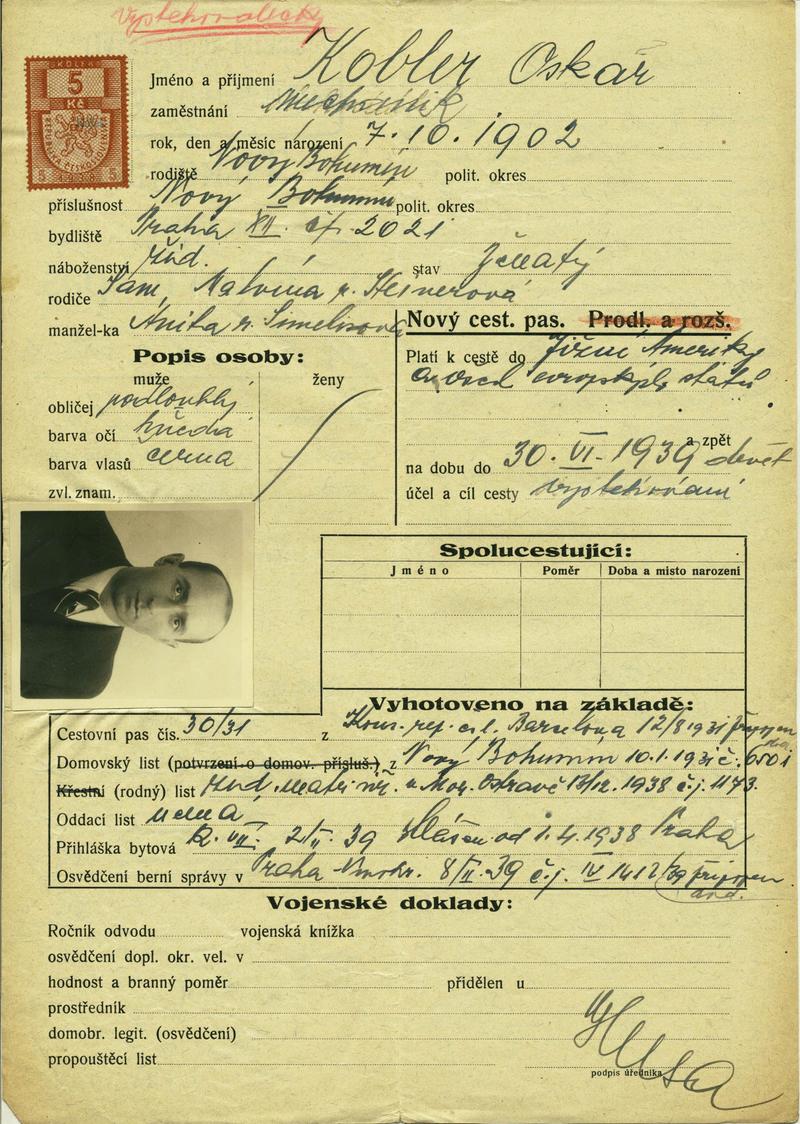 Vystěhovalecký
KOLEK
5
Kč
Jméno a příjmení Kobler Oskar
zaměstnání mechanik
rok, den a měsíc narození 7. 10. 1902
rodiště Nový Bohumín polit. okres
příslušnost Nový Bohumín polit. okres
bydliště Praha XII. čp. 2021
náboženství žid. stav ženatý
rodiče Sam, Malvina r.
manžel-ka Anita r.
Nový cest. pas. Prodl. a rozš.
Popis osoby:
muže ženy
Platí k cestě do Jižní Ameriky
a všech evropských států
obličej podlouhlý
barva očí hnědá
barva vlasů černá
zvl. znam.
a zpět
na dobu do 30. VI. 1939 devět
účel a cíl cesty vystěhování
Spolucestující:
Jméno Poměr Doba a místo narození
Vyhotoveno na základě:
Cestovní pas čís. 30/31 z Kons. rep. čsl. Barcelona 12/8 1931 připojen
Domovský list (potvrzení o domov. přísluš.) z Nový Bohumín 10.1.1931 č. 6501
Křestní (rodný) list žid. matr. v Mor. Ostravě 13/12. 1938 č.j. 1173.
Oddací list nemá
Přihláška bytová R. VII. 2/II. 39 Hlášen od 1.4.1938 Praha
Osvědčení berní správy v Praha 8/II. 39 č.j. IV 1412/39 připojen
Vojenské doklady:
Ročník odvodu vojenská knížka
osvědčení dopl. okr. vel. v
hodnost a branný poměr přidělen u
prostředník
domobr. legit. (osvědčení)
propouštěcí list
podpis úředníka